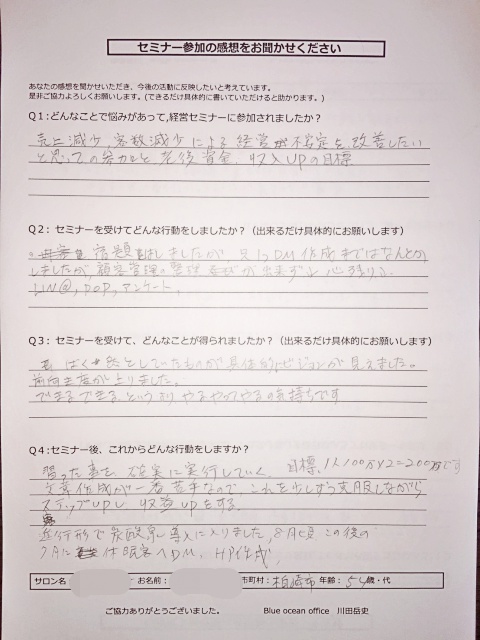 セミナー参加の感想をお聞かせください
あなたの感想を聞かせいただき、今後の活動に反映したいと考えています。
是非ご協力よろしくお願いします。(できるだけ具体的に書いていただけると助かります。)
Q1:どんなことで悩みがあって,経営セミナーに参加されましたか?
売上減少、客数減少による経営が不安定を改善したい
と思っての参加と老後資金、収入UPの目標
Q2:セミナーを受けてどんな行動をしましたか?(出来るだけ具体的にお願いします)
宿題はしましたが、DM作成まではなんとか
しましたが、顧客管理の整理が出来ず 心残り
LIN@, POP, アンケート,
Q3:セミナーを受けて、どんなことが得られましたか?(出来るだけ具体的にお願いします)
ばく然としていたものが具体的にビジョンが見えました。
前向き度が上りました。
できるできるというよりやるやってやるの気持ちです
Q4:セミナー後、これからどんな行動をしますか?
習った事を確実に実行していく、目標、1人100万×2=200万です
文章作成が一番苦手なので、これを少しずつ克服しながら
ステップUPし 収益UPをする。
進行形で炭酸泉導入に入りました,8月頃 この後の
7月に 休眠客へDM, HP作成,
サロン名 お名前: 市町村:柏崎市 年齢:54歳・代
ご協力ありがとうございました。 Blue ocean office 川田岳史